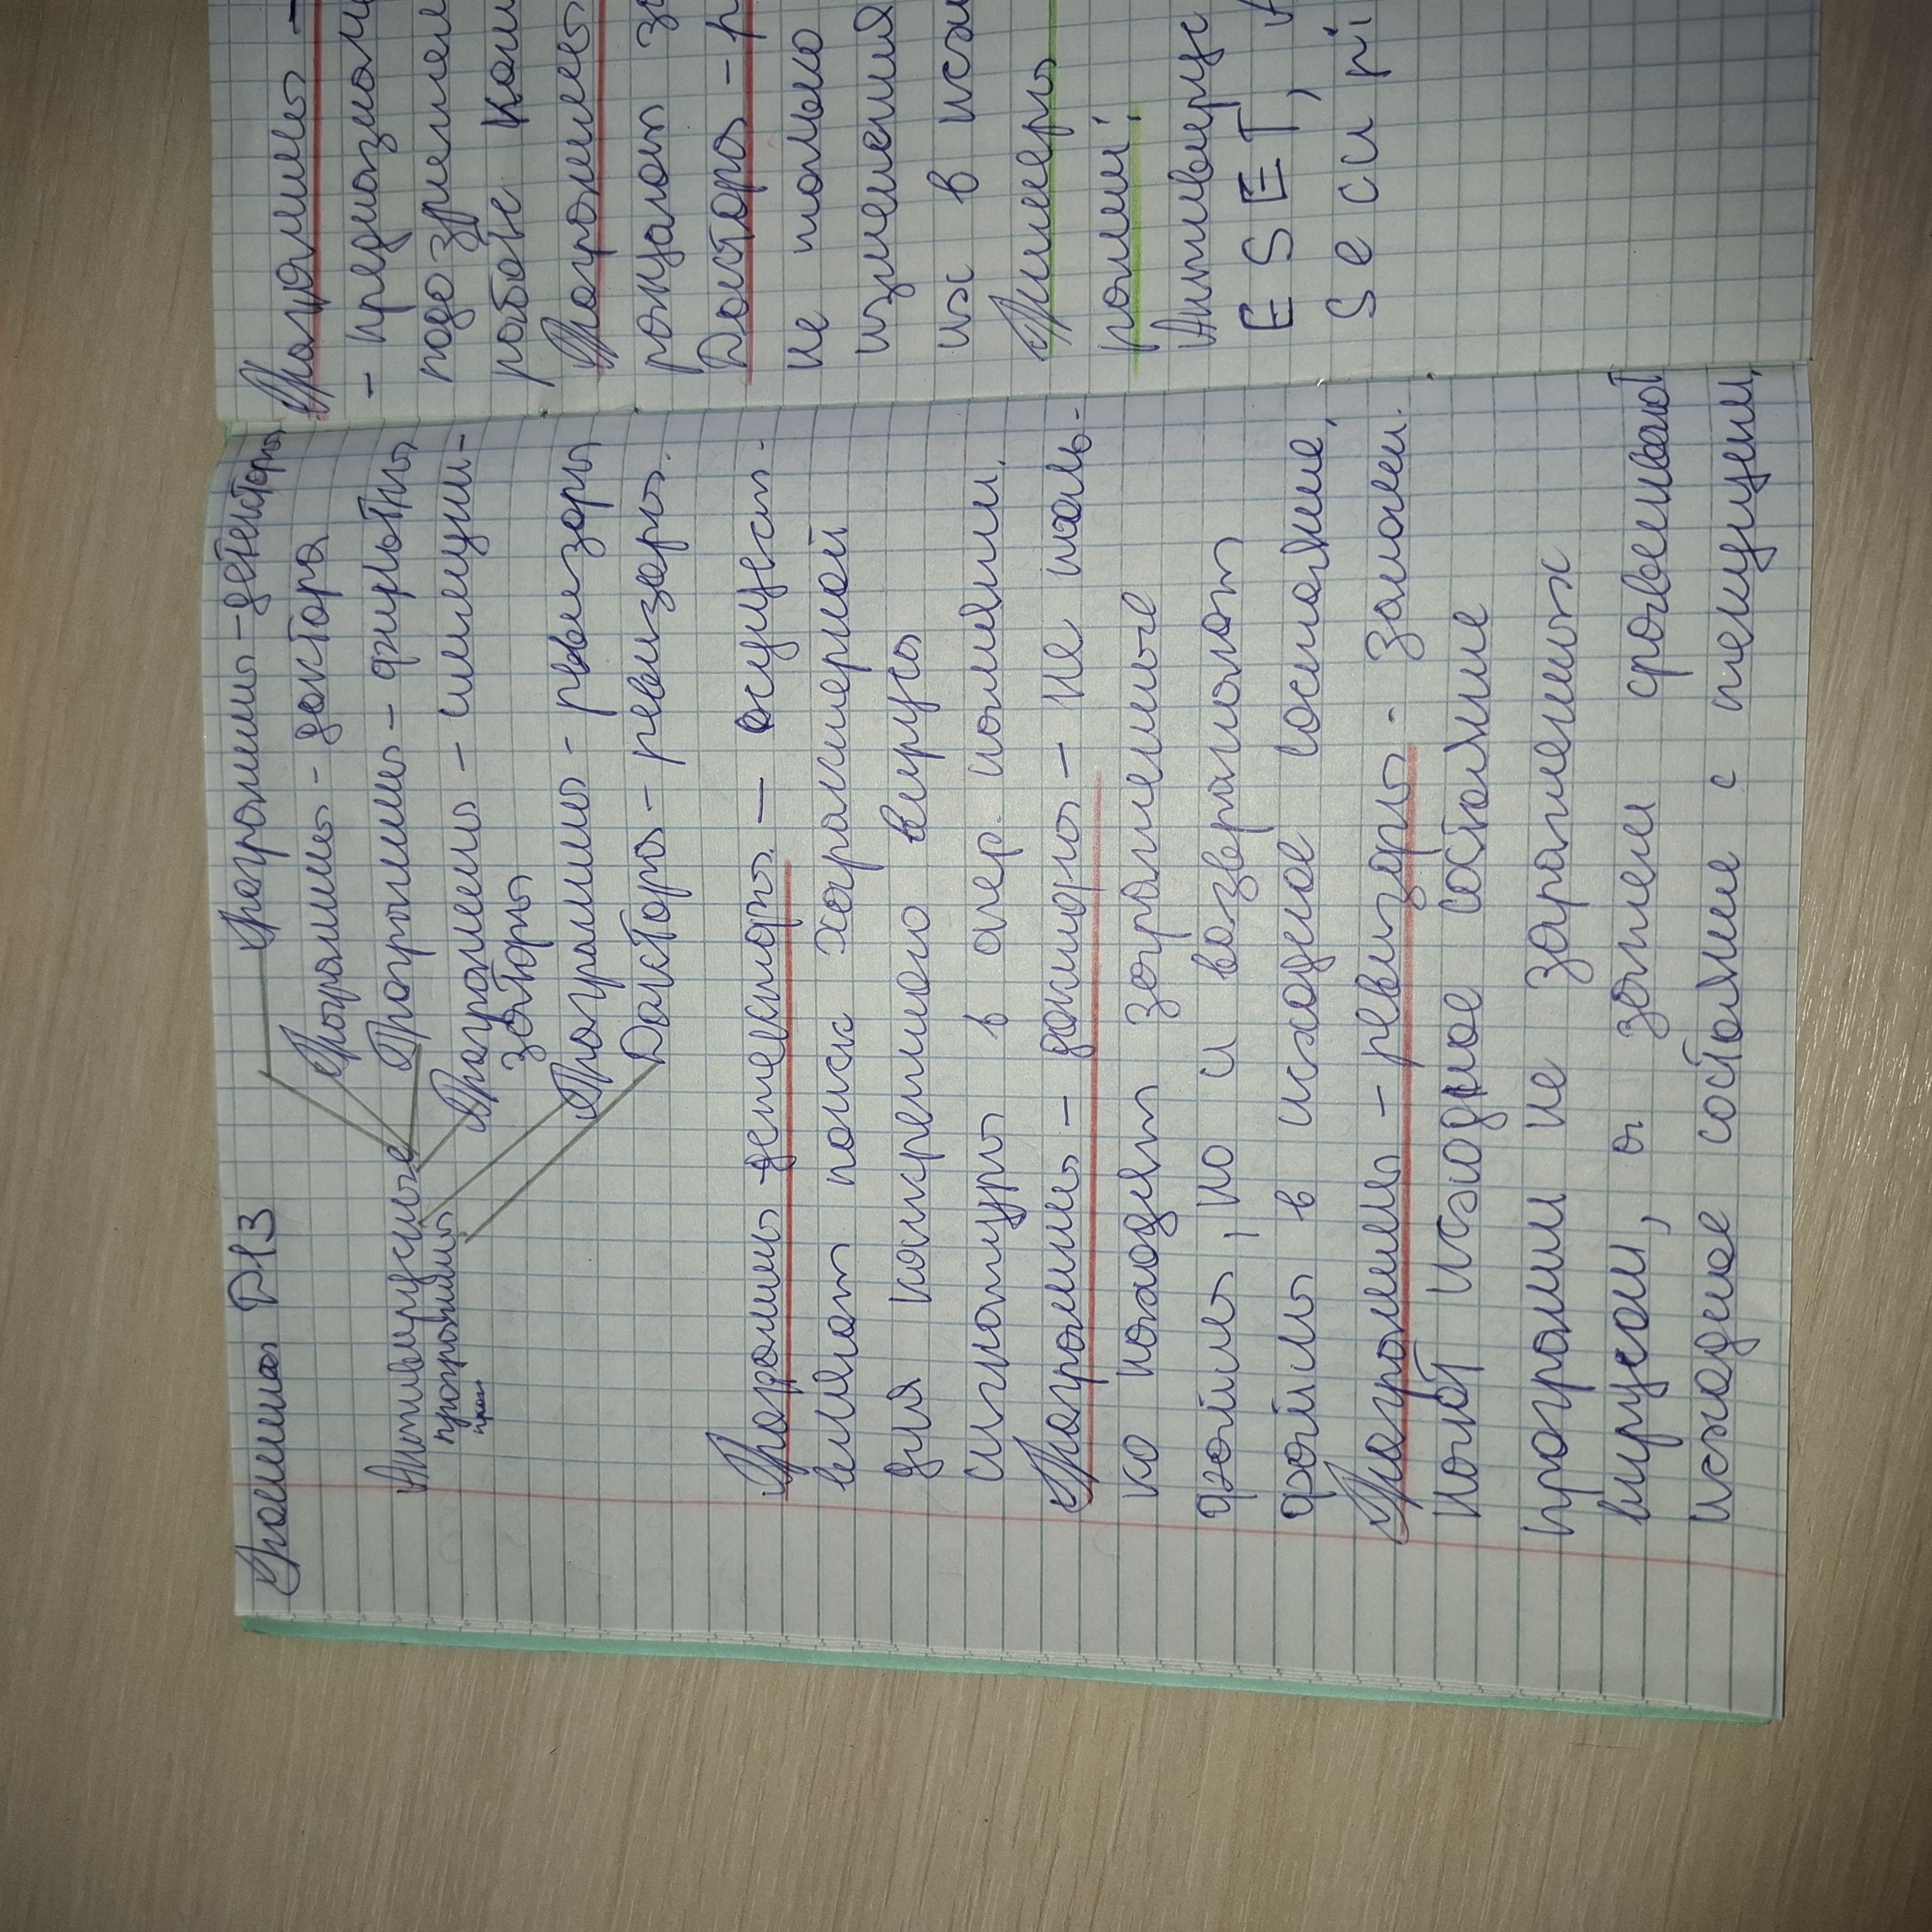 Программа ДНЗ
Антивирусные
программы
Программы - детекторы
Программы - доктора
Программы - фильтры
Программы - иммуни-
заторы
Программы - ревизоры
Доктора - ревизоры.
Программы - детекторы - осущест-
вляют поиск характерной
для конкретного вируса
сигнатуры в опер. памяти.
Программы - доктора - не толь-
ко находят зараженные
файлы, но и возвращают
файлы в исходное состояние.
Программы - ревизоры - запоми-
нают исходное состояние
программ не зараженных
вирусом, а затем сравнивают
исходное состояние с текущим.
Программы -
- предназначе
подозрител
работе ком
Программы
Доктора - р
не только
изменения
их в исх
Примеры
рамм:
Антивирус
ESET,
Securi